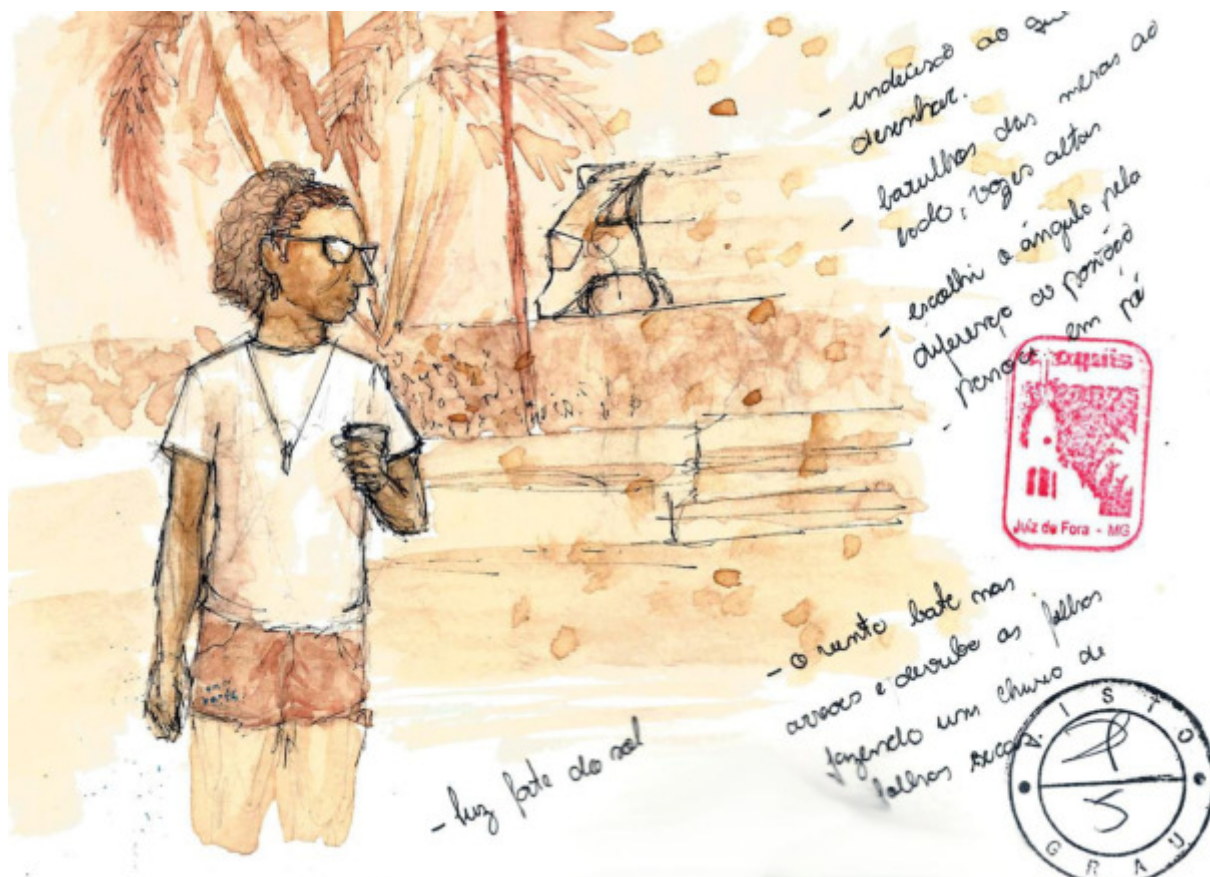 - indeciso ao
desenhar.
- barulhos das mesas ao
lado, vozes altas
- escolhi o ângulo pela
diferença da posição
- pessoa em pé
croquis
Juiz de Fora - MG
- o vento bate nas
arvores e derruba as folhas
fazendo um chuva de
folhas secas.
- luz forte do sol
VISTO
GRAU